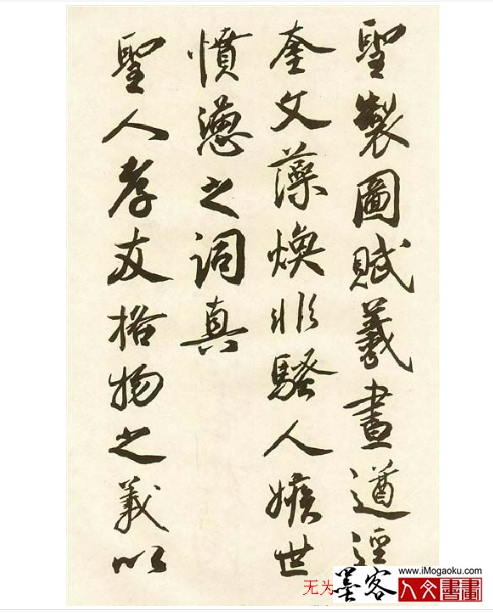 聖製圖賦羲畫遒逕
奎文藻煥非騷人嫉世
憤懣之詞真
聖人孝友格物之義以
无为
墨客
www.iMogaoku.com
人文書畫